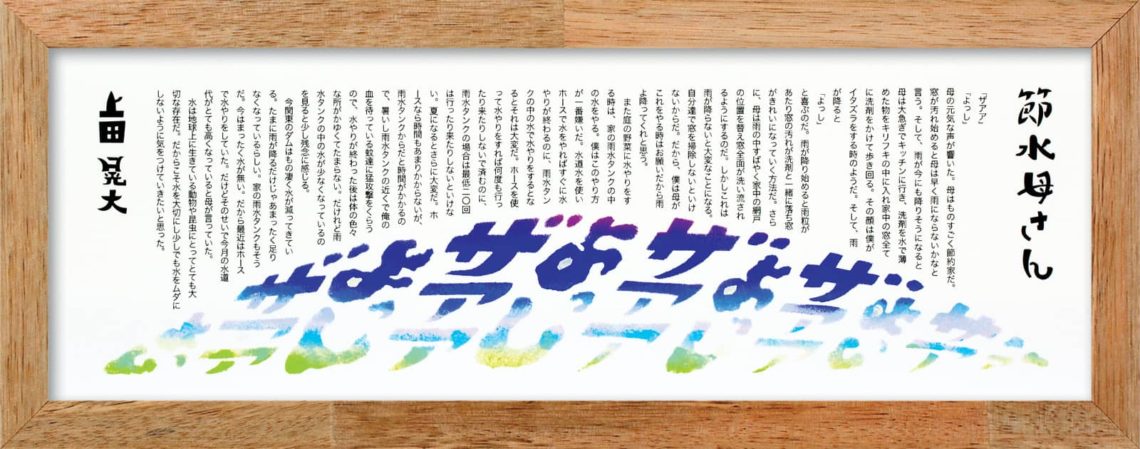 節水母さん
「ザアア」
「よっし」
母の元気な声が響いた。母はものすごく節約家だ。
窓が汚れ始めると母は早く雨にならないかなと
言う。そして、雨が今にも降りそうになると
母は大急ぎでキッチンに行き、洗剤を水で薄
めた物をキリフキの中に入れ家中の窓全て
に洗剤をかけて歩き回る。その顔は僕が
イタズラをする時のようだ。そして、雨
が降ると
「よっし」
と喜ぶのだ。雨が降り始めると雨粒が
あたり窓の汚れが洗剤と一緒に落ち窓
がきれいになっていく方法だ。さら
に、母は雨の中すばやく家中の網戸
の位置を替え窓全面が洗い流され
るようにするのだ。しかしこれは
雨が降らないと大変なことになる。
自分達で窓を掃除しないといけ
ないからだ。だから、僕は母が
これをやる時はお願いだから雨
よ降ってくれと思う。
また庭の野菜に水やりをす
る時は、家の雨水タンクの中
の水をやる。僕はこのやり方
が一番嫌いだ。水道水を使い
ホースで水をやればすぐに水
やりが終わるのに、雨水タン
クの中の水で水やりをするとな
るとそれは大変だ。ホースを使
って水やりをすれば何度も行っ
たり来たりしないで済むのに、
雨水タンクの場合は最低二〇回
は行ったり来たりしないといけな
い。夏になるとさらに大変だ。ホ
ースなら時間もあまりかからないが
雨水タンクからだと時間がかかるの
で、暑いし雨水タンクの近くで俺の
血を待っている蚊達に猛攻撃をくらう
ので、水やりが終わった後は体の色々
な所がかゆくてたまらない。だけれど雨
水タンクの中の水が少なくなっているの
を見ると少し残念に感じる。
今関東のダムはもの凄く水が減ってきてい
る。たまに雨が降るだけじゃあまったく足り
なくなっているらしい。家の雨水タンクもそう
だ。今はまったく水が無い。だから最近はホース
で水やりをしていた。だけどそのせいで今月の水道
代がとても高くなっていると母が言っていた。
水は地球上に生きている動物や昆虫にとってとても大
切な存在だ。だからこそ水を大切にし少しでも水をムダに
しないように気をつけていきたいと思った。
上田 晃大
ザよザよザ